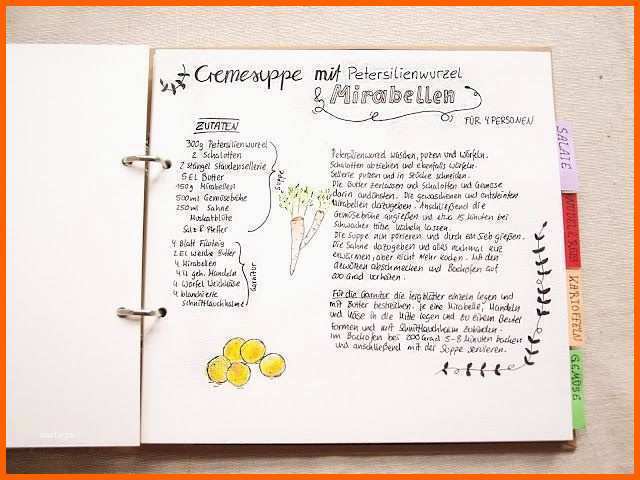 Cremesuppe mit Petersilienwurzel
& Mirabellen
FÜR 4 PERSONEN
ZUTATEN
300g Petersilienwurzel
2 Schalotten
2 Stängel Staudensellerie
5 EL Butter
150g Mirabellen
500ml Gemüsebrühe
250ml Sahne
Muskatblüte
Salz & Pfeffer
Suppe
4 Blatt Filoteig
2 EL weiche Butter
4 Mirabellen
4 Würfel
4 blanchierte
Schnittlauchhalme
Garnitur
Petersilienwurzel waschen, putzen und würfeln.
Schalotten abziehen und ebenfalls würfeln.
Sellerie putzen und in Stücke schneiden.
Die Butter zerlassen und Schalotten und Gemüse
darin andünsten. Die gewaschenen und entsteinten
Mirabellen dazugeben. Anschließend die
Gemüsebrühe angießen und etwa 15 Minuten bei
schwacher Hitze köcheln lassen.
Die Suppe pürieren und durch ein Sieb gießen.
Die Sahne dazugeben und alles nochmal kurz
erwärmen, aber nicht mehr kochen. Mit den
Gewürzen abschmecken und Backofen auf
200 Grad vorheizen.
Für die Garnitur die Teigblätter einzeln legen und
mit Butter bestreichen. Je eine Mirabelle, Mandeln
und Käse in die Mitte legen und zu einem Beutel
formen und mit Schnittlauchhalm zubinden.
Im Backofen bei 200 Grad 5-8 Minuten backen
und anschließend mit der Suppe servieren.
SALATE
KARTOFFELN
GEMÜSE